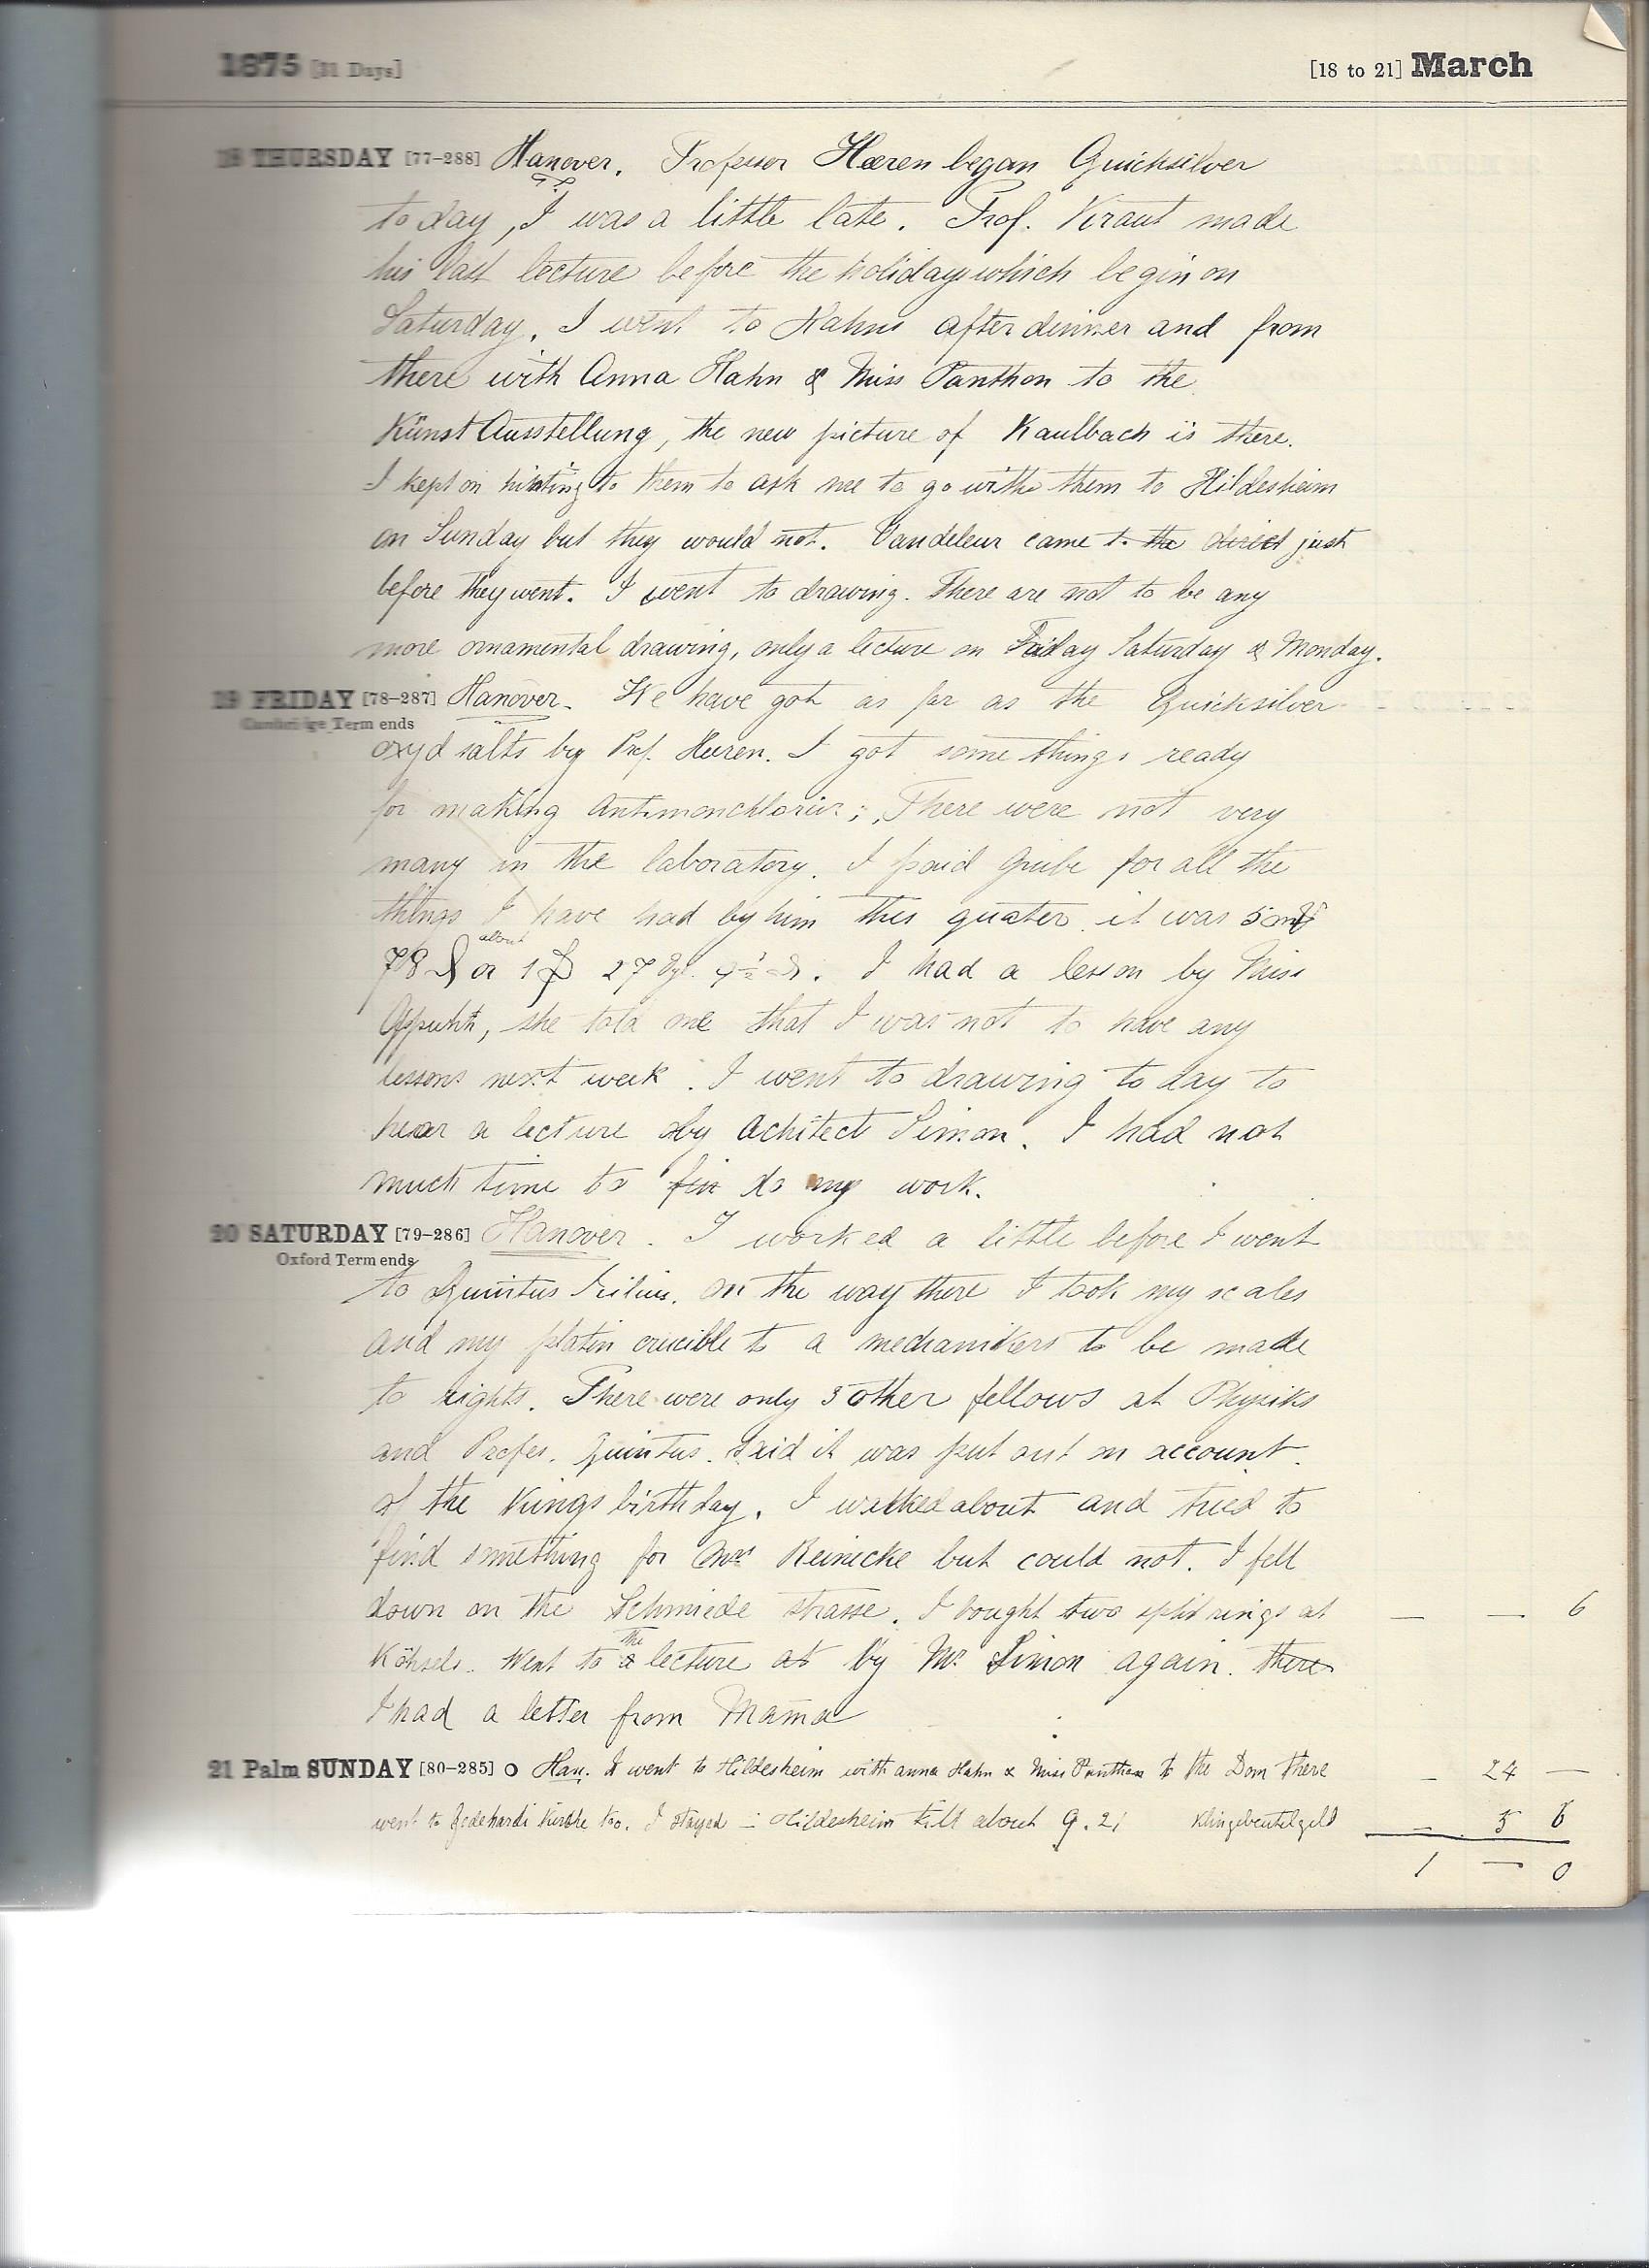 1875 [31 Days] [18 to 21] March
18 THURSDAY [77-288] Hanover. Professor Heeren began Quicksilver
to day, I was a little late. Prof. Kraut made
his last lecture before the holidays which begin on
Saturday. I went to Hahns after dinner and from
there with Anna Hahn & Miss Panthon to the
Künst Ausstellung, the new picture of Kaulbach is there.
I kept on hinting to them to ask me to go with them to Hildesheim
on Sunday but they would not. Vandeleur came to the direct just
before they went. I went to drawing. There are not to be any
more ornamental drawing, only a lecture on Friday Saturday & Monday.
19 FRIDAY [78-287] Hanover. We have got as far as the Quicksilver
Cambridge Term ends
oxyd salts by Prof. Heeren. I got some things ready
for making ; There were not very
many in the laboratory. I paid Grube for all the
things I have had by him this quater it was 5
about
78 or 1 27 9½. I had a lesson by Miss
she told me that I was not to have any
lessons next week. I went to drawing to day to
hear a lecture by Achitect Simon. I had not
much time to fin do my work.
20 SATURDAY [79-286] Hanover. I worked a little before I went
Oxford Term ends
to Quintus Icilius. On the way there I took my scales
and my platin crucible to a mechanikers to be made
to rights. There were only 3 other fellows at Physiks
and Profes. Quintus. Said it was put out on account
of the Kings birthday. I walked about and tried to
find something for Mrs Reinicke but could not. I fell
down on the Schmiede strasse. I bought two split rings at — — 6
the
Köhsels. Went to a lecture at by Mr. Simon again. there
I had a letter from Mama
21 Palm SUNDAY [80-285] O Han. I went to Hildesheim with Anna Hahn & Miss Panthon to the Dom there — 24 —
went to Godehardi Kirche too. I stayed in Hildesheim till about 9.21 Klingebeutelgeld — 5 6
1 — 0